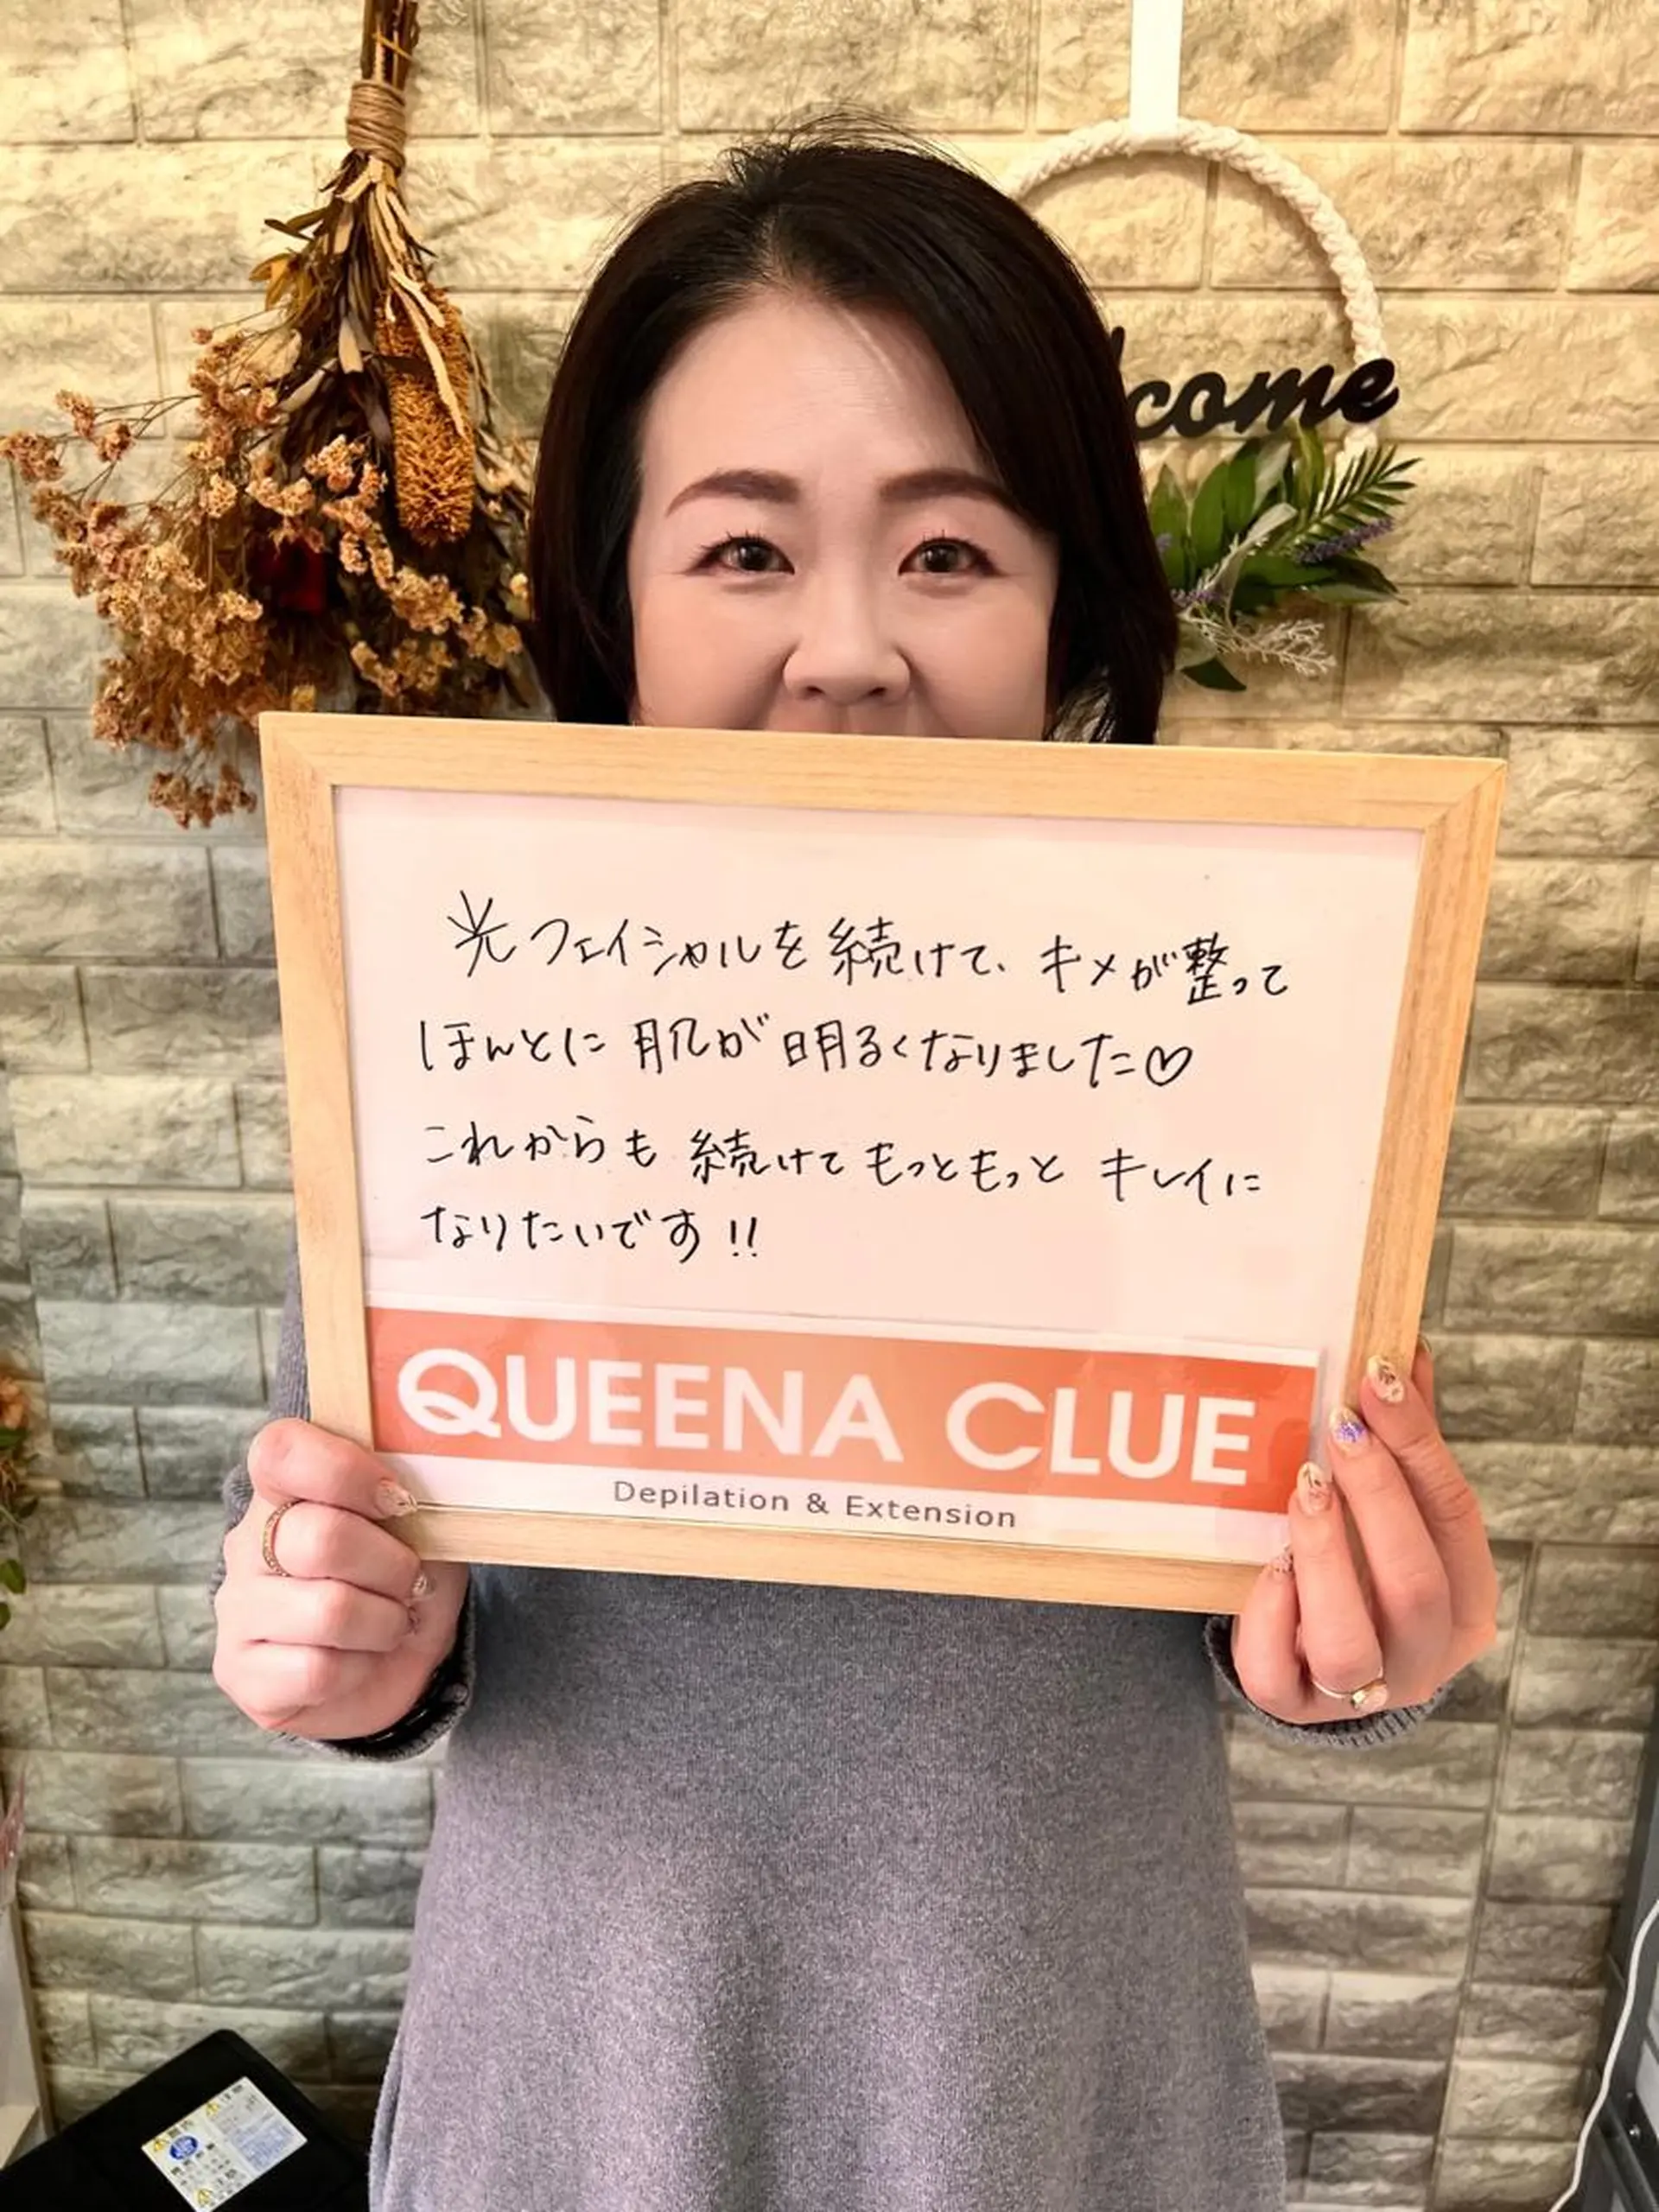 come
光フェイシャルを続けて、キメが整って
ほんとに肌が明るくなりました♡
これからも続けてもっともっとキレイに
なりたいです!!
QUEENA CLUE
Depilation & Extension